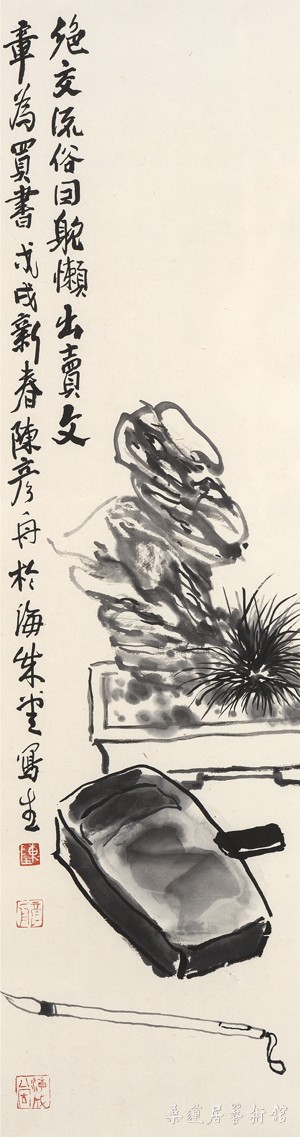 絶交流俗因躭懶出賣文
章為買書戊戌新春陳彦舟於海朱堂寫生
陳
桑蓮居藝術館